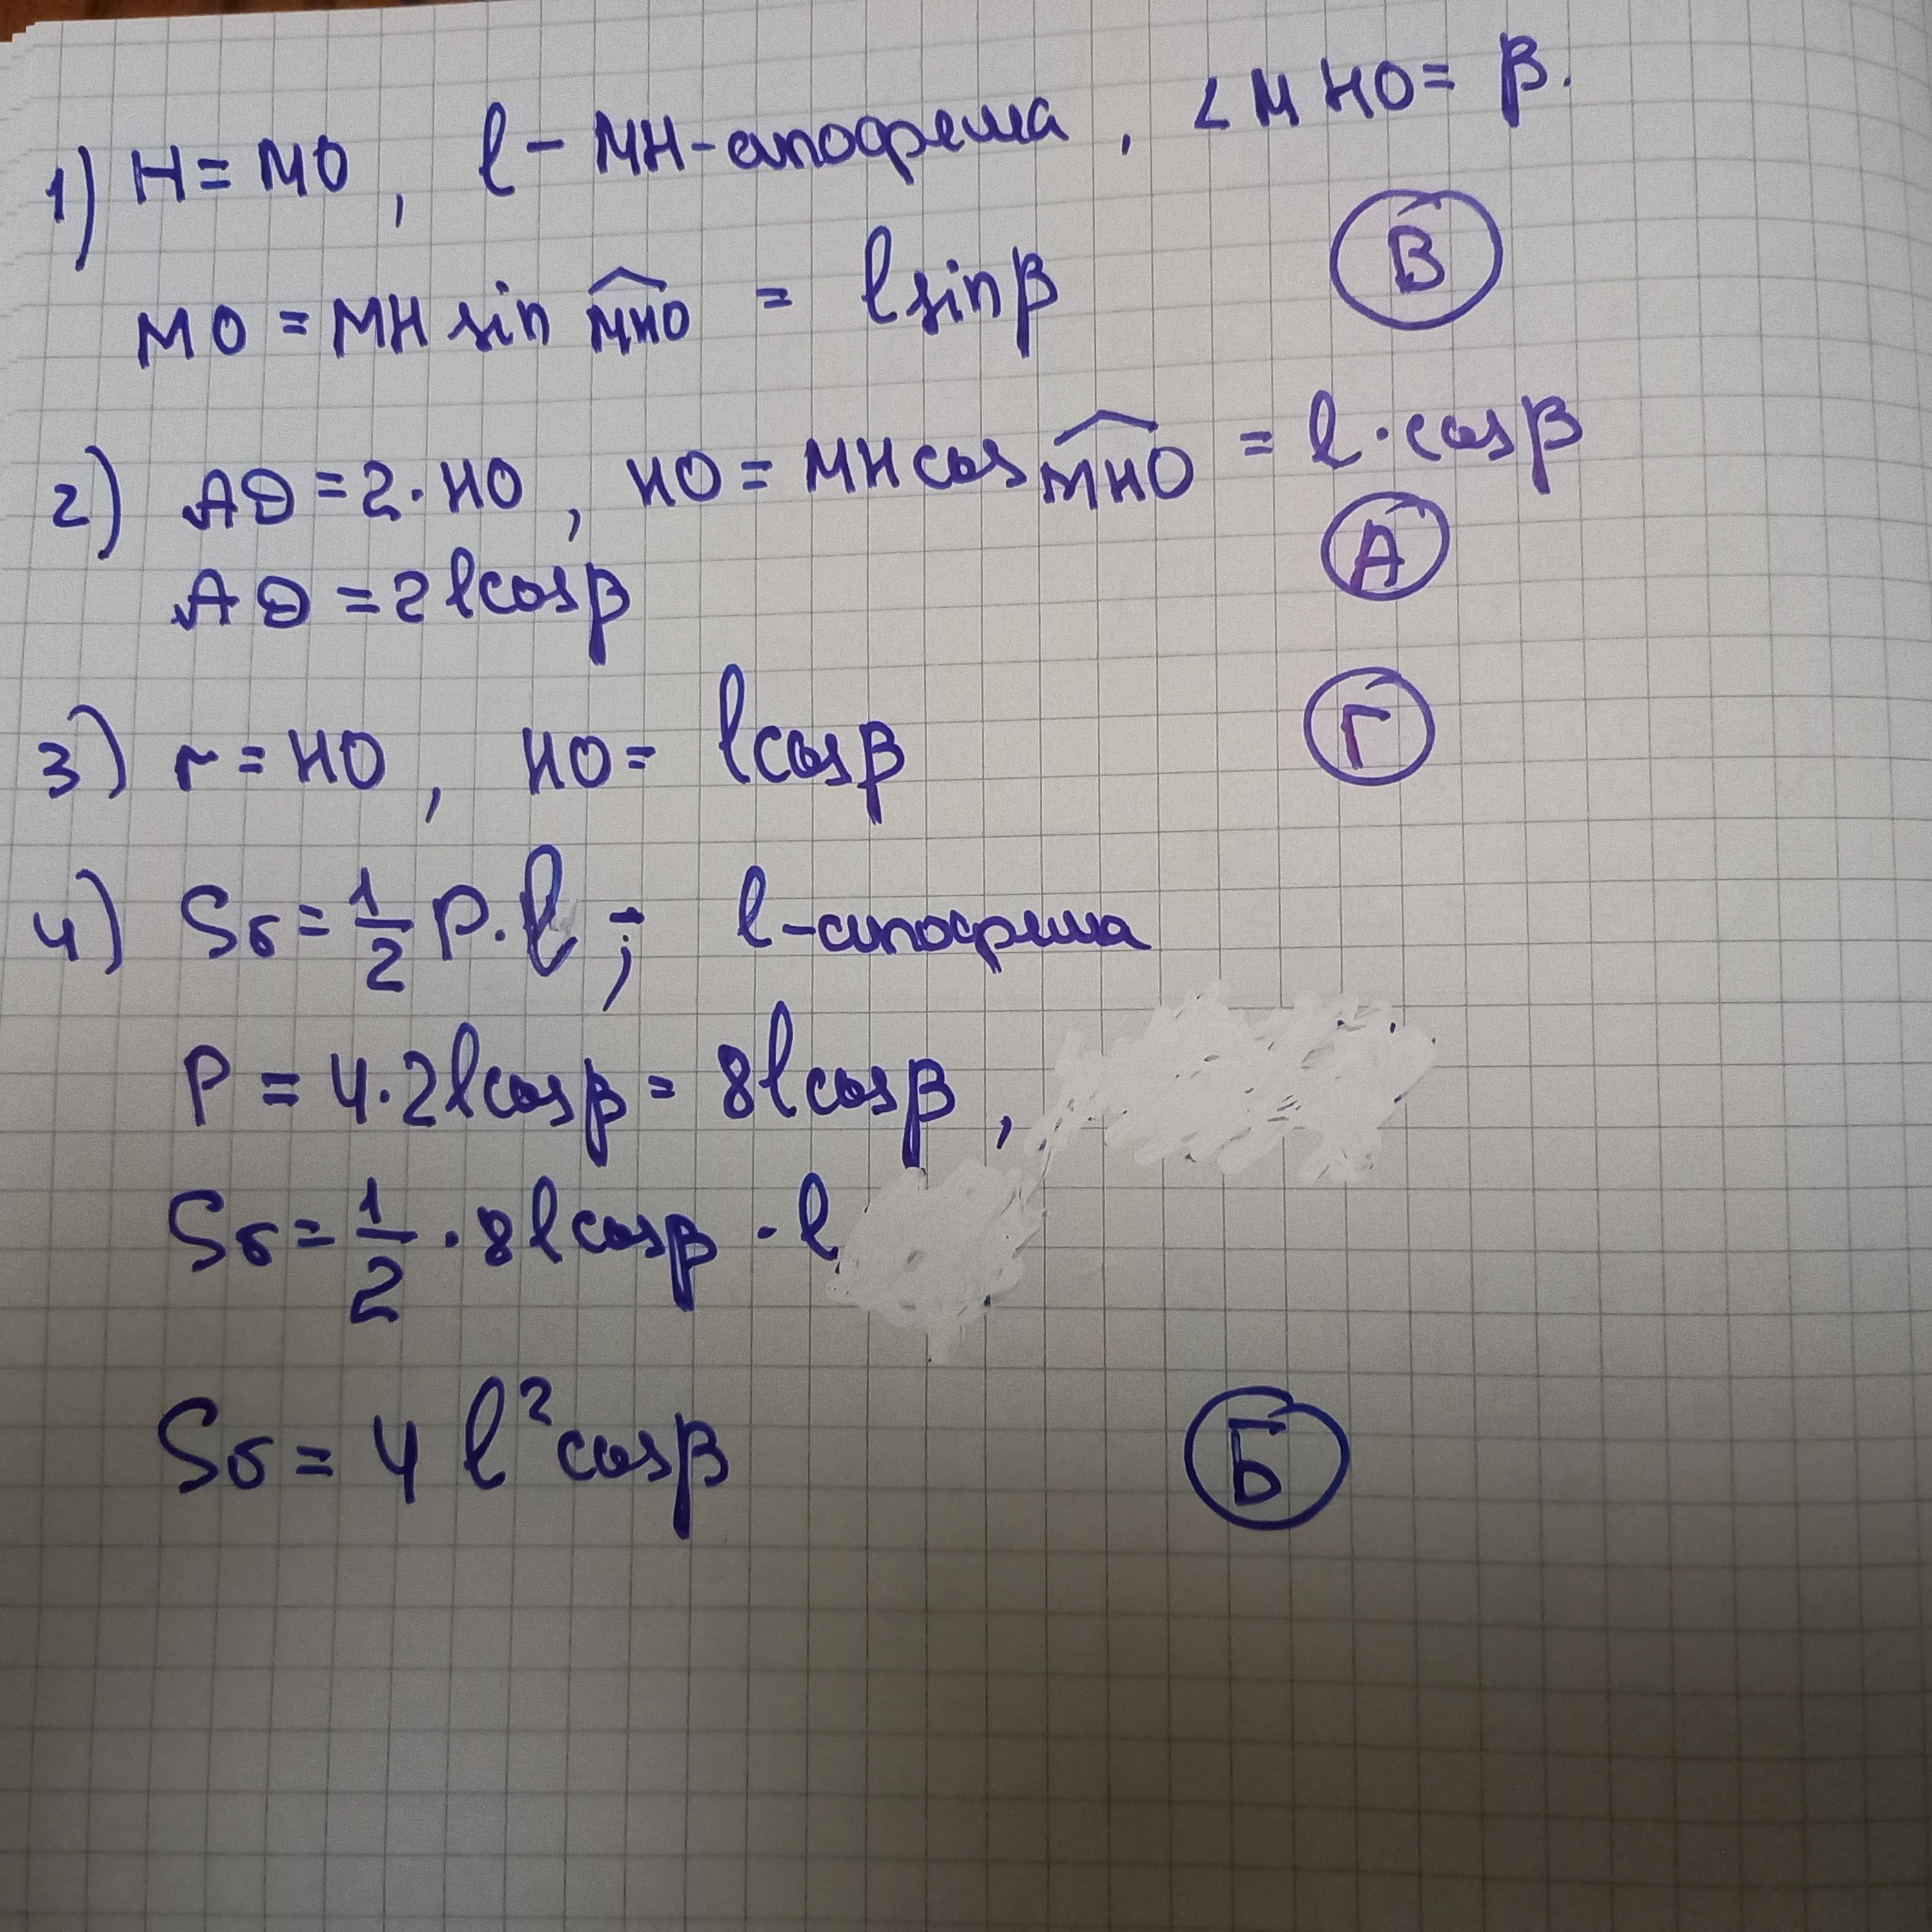 1) H = MO, l - MH - апофема, ∠MHO = β.
MO = MH sin MHO = l sin β
В
2) AD = 2 · HO, HO = MH cos MHO = l · cos β
А
AD = 2 l cos β
3) r = HO, HO = l cos β
Г
4) Sб = 1/2 P · l ; l - апофема
P = 4 · 2 l cos β = 8 l cos β,
Sб = 1/2 · 8 l cos β · l
Sб = 4 l² cos β
Б